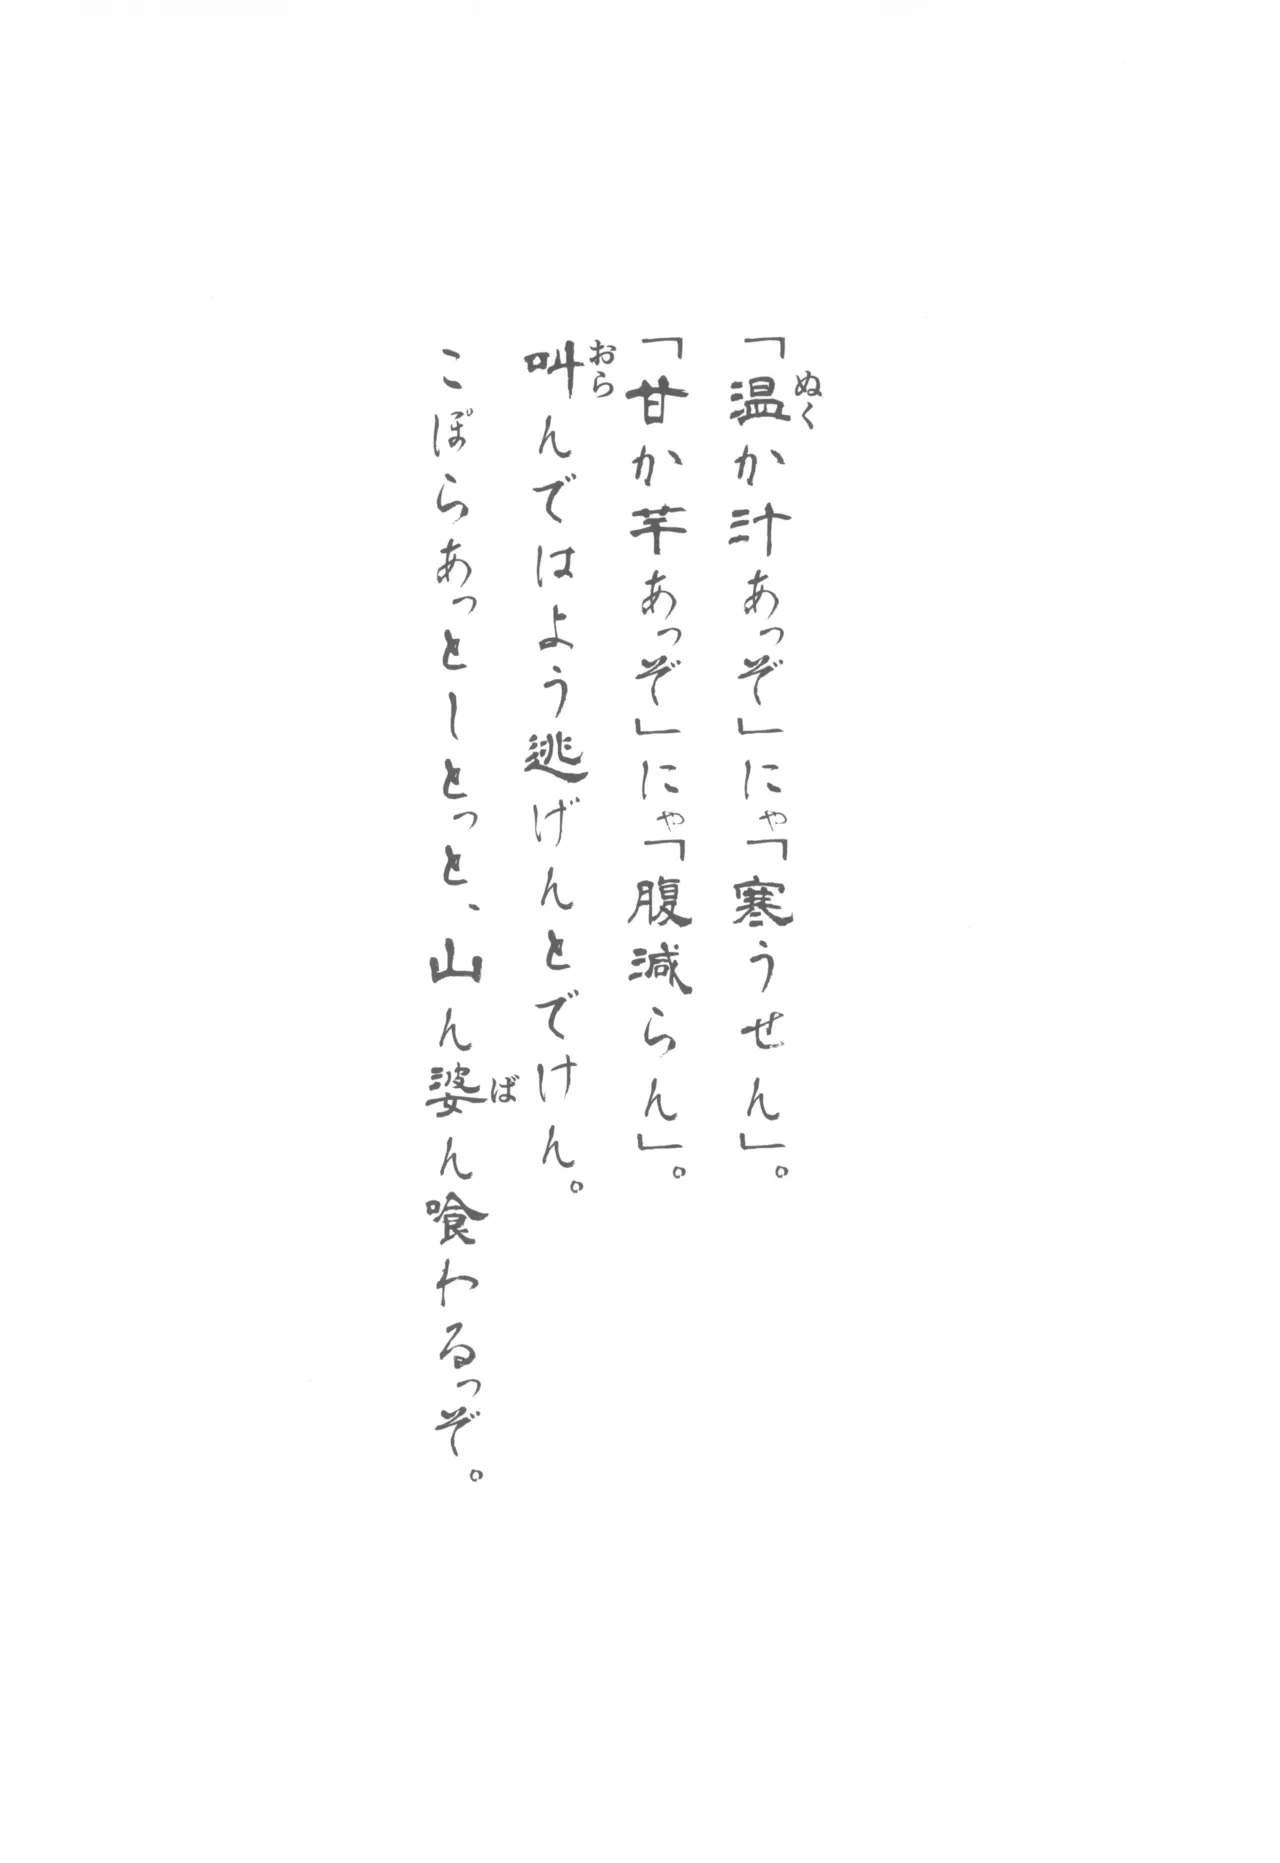 「温か汁あっぞ」にゃ「寒うせん」。
「甘か芋あっぞ」にゃ「腹減らん」。
叫んではよう逃げんとでけん。
こぽらあっとしとっと、山ん婆ん喰わるっぞ。
ぬく
おら
ば